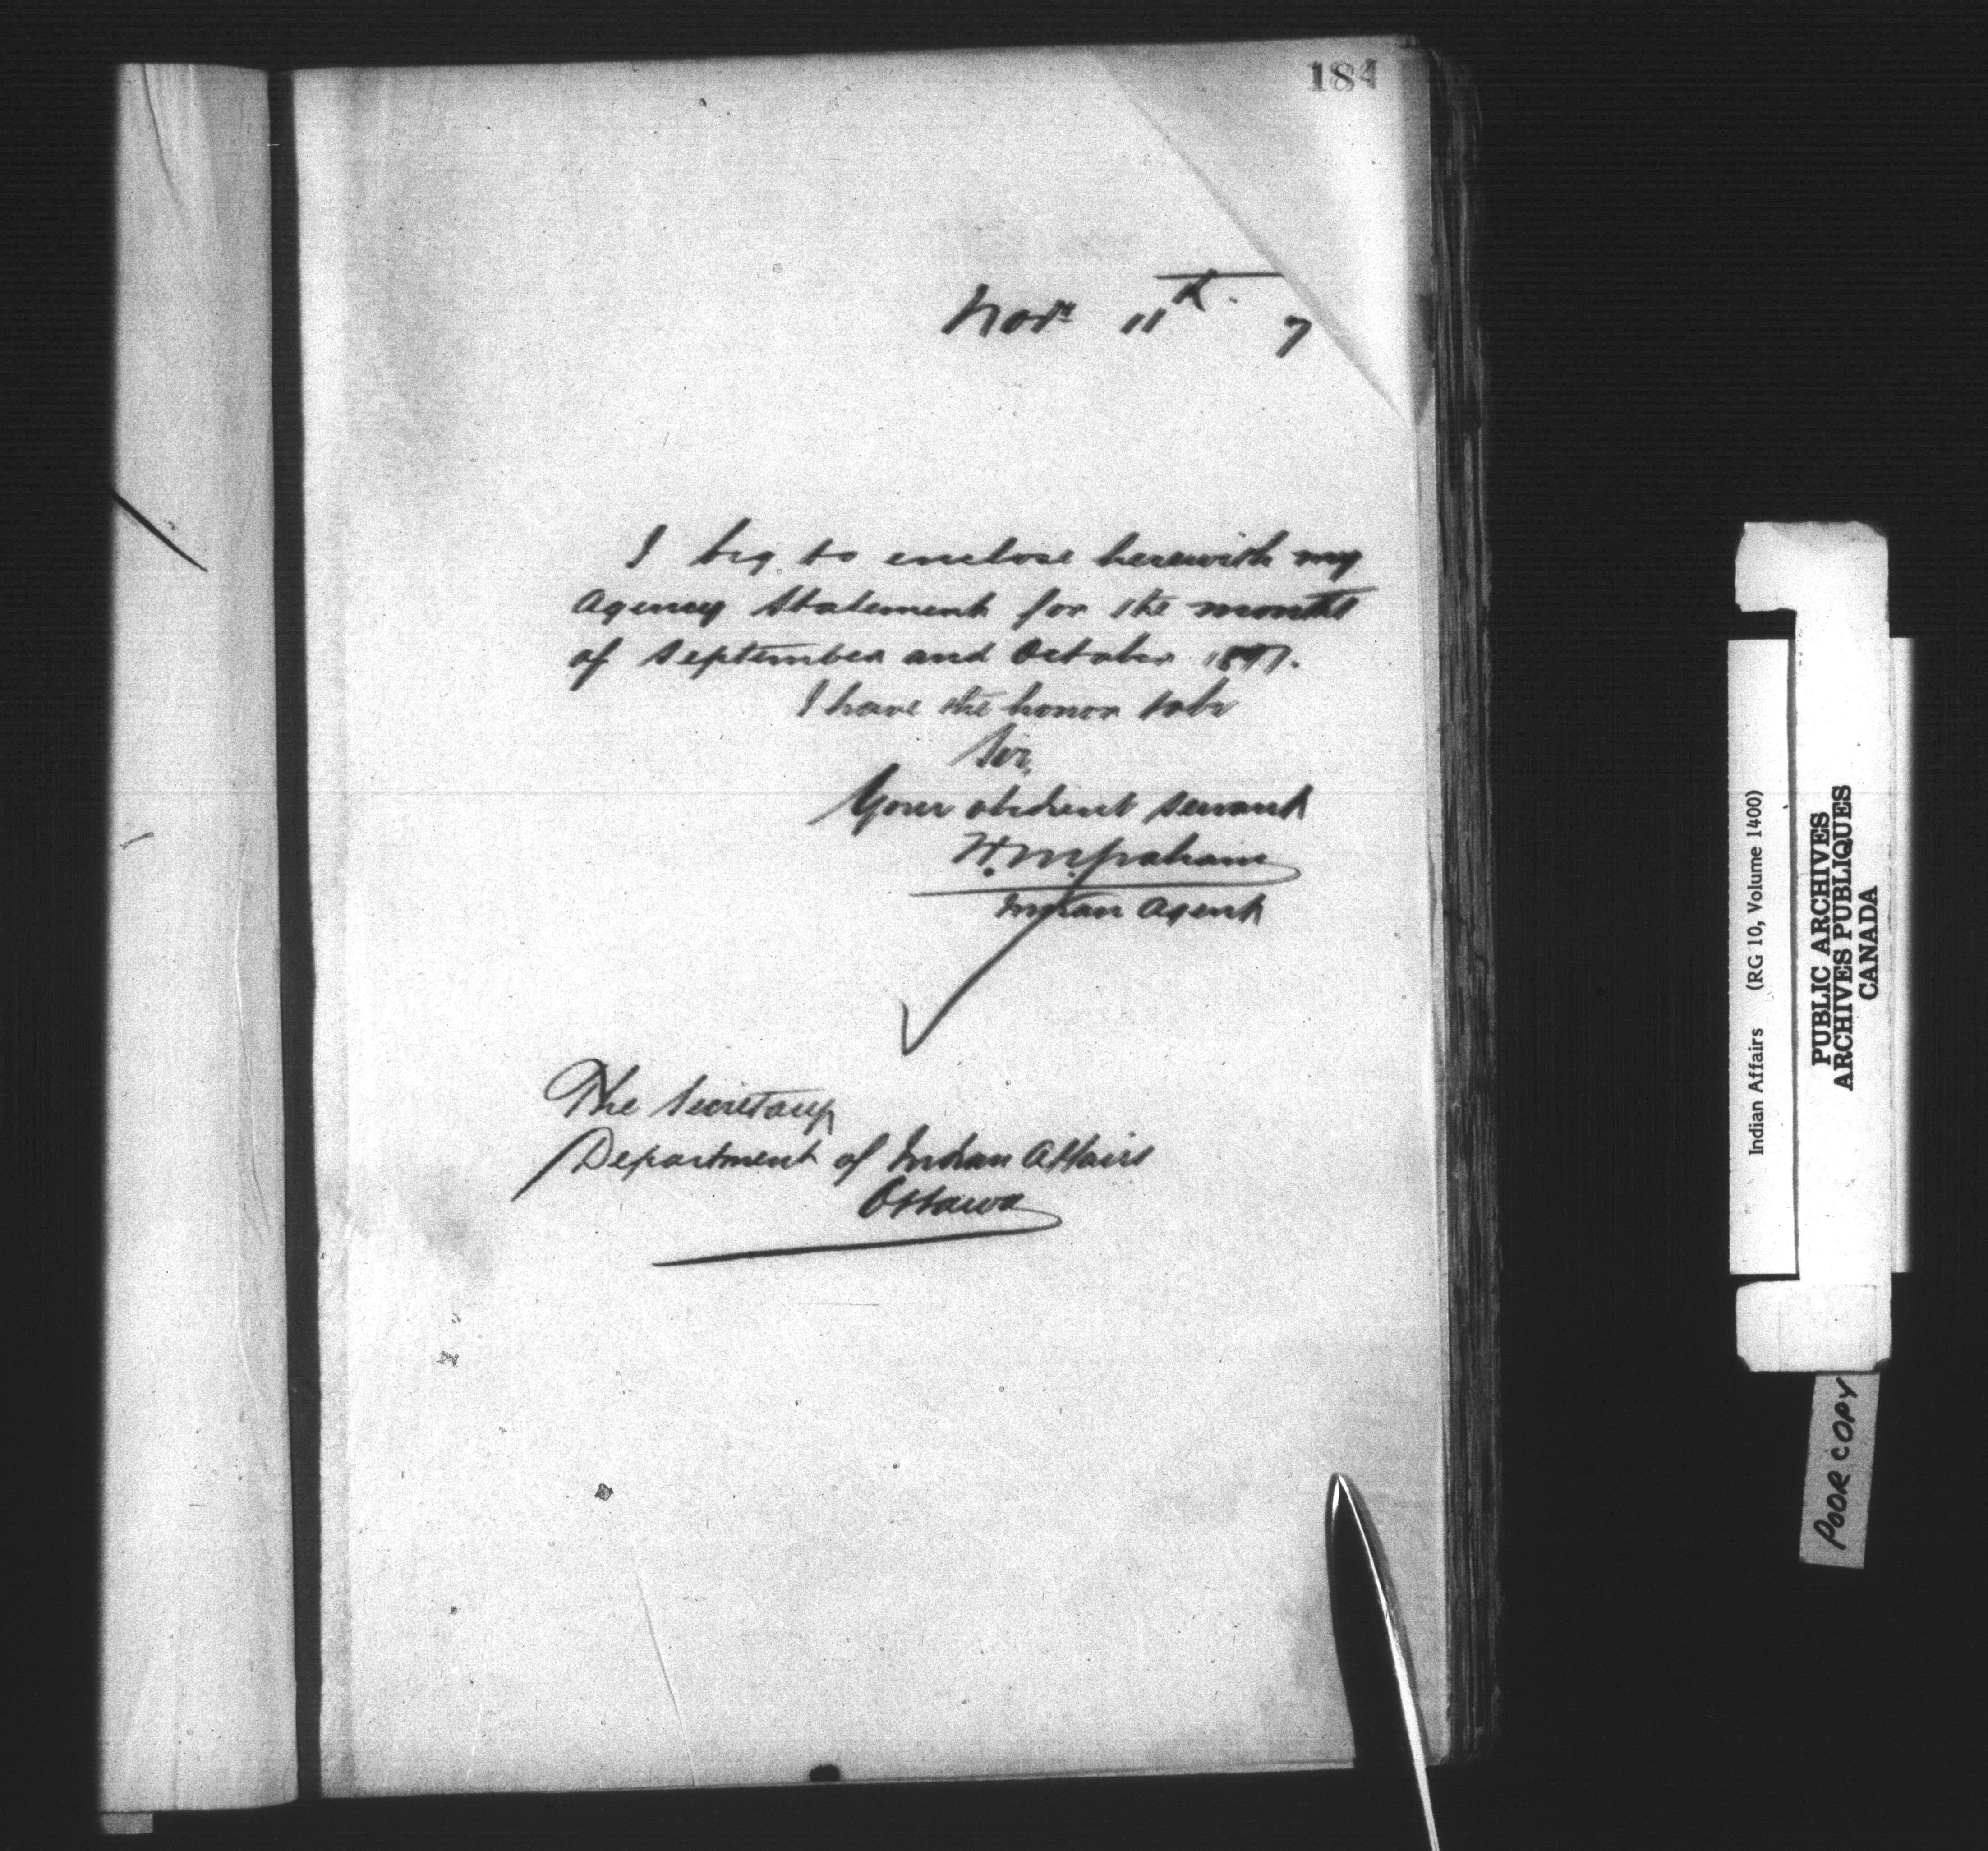 184
Novr 11th. 7
I beg to enclose herewith my
Agency Statement for the months
of September and October 1897.
I have the honor to be
Sir,
Your obedient servant
W. M. Graham
Indian Agent
The Secretary
Department of Indian Affairs
Ottawa
Indian Affairs (RG 10, Volume 1400)
PUBLIC ARCHIVES
ARCHIVES PUBLIQUES
CANADA
POOR COPY